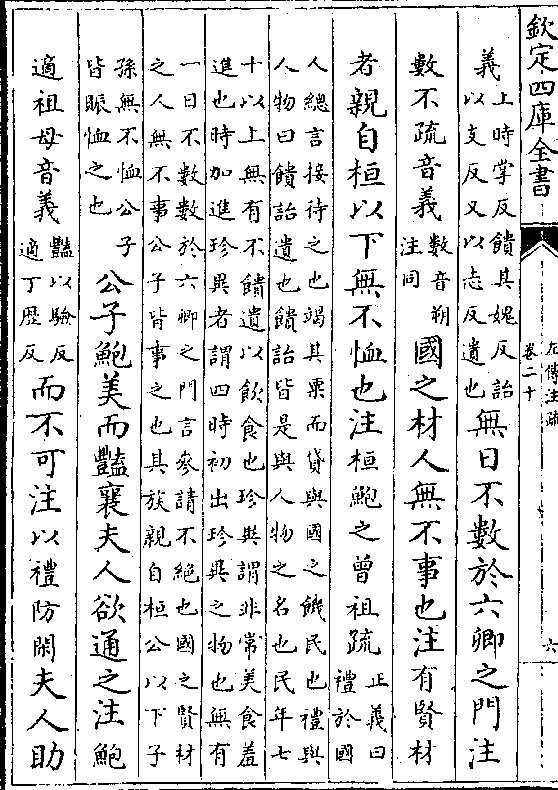 欽定四庫全書
左傳注疏
卷二十
六
義上時掌反饋其媿反詒以支反又以志反遺也無日不數於六卿之門注
數不疏音義數音朔注同國之材人無不事也注有賢材
者親自桓以下無不恤也注桓鮑之曾祖疏正義曰禮於國
人總言接待之也竭其粟而貸與國之饑民也禮與人物曰饋詒遺也饋詒皆是與人物之名也民年七
十以上無有不饋遺以飲食也珍異謂非常美食羞進也時加進珍異者謂四時初出珍異之物也無有
一日不數數於六卿之門言參請不絶也國之賢材之人無不事公子皆事之也其族親自桓公以下子
孫無不恤公子皆賑恤之也公子鮑美而豔襄夫人欲通之注鮑
適祖母音義豔以驗反適丁歴反而不可注以禮防閑夫人助